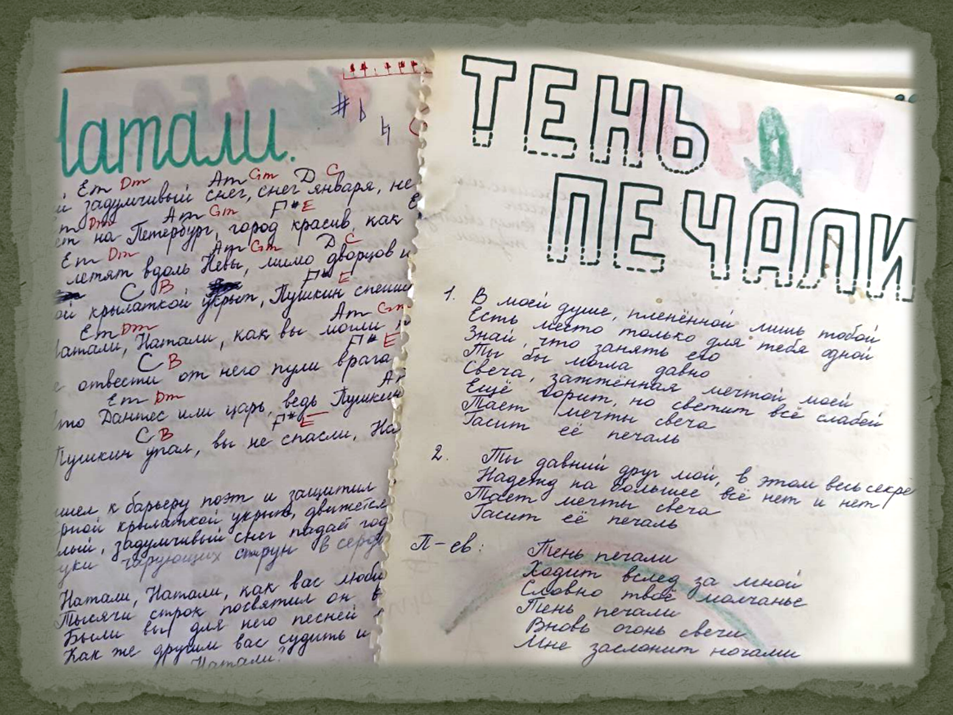 Натали.
# b
Em Dm Am Gm D C
й задумчивый снег, снег января, не
Dm Am Gm F# E
ет на Петербург, город красив, как
Em Dm Am Gm D C
летят вдоль Невы, мимо дворцов и
C B F# E
ой крылаткой укрыт, Пушкин спеши
Em Dm Am Gm
Натали, Натали, как вы могли
C B F# E
отвести от него пули врага
Em Dm Am
то Дантес или царь, ведь Пушкин
C B F# E
Пушкин упал, вы не спасли, На
шел к барьеру поэт и защитил
рной крылаткой укрыт, движется
лый, задумчивый снег падает год
уки чарующих струн в серд
Натали, Натали, как вас люби
Тысячи строк посвятил он в
Были вы для него песней
Как же другим вас судить и
Натали?
ТЕНЬ
ПЕЧАЛИ
1. В моей душе, пленённой лишь тобой
Есть место только для тебя одной
Знай, что занять его
Ты бы могла давно
Свеча, зажжённая мечтой моей
Ещё горит, но светит всё слабей
Тает мечты свеча
Гасит её печаль
2. Ты давний друг мой, в этом весь секре
Надежд на большее всё нет и нет
Тает мечты свеча
Гасит её печаль
П-ев: Тень печали
Ходит вслед за мной
Словно твоё молчанье
Тень печали
Вновь огонь свечи
Мне заслонит ночами